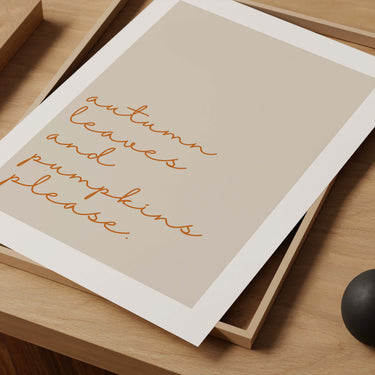 autumn
leaves
and
pumpkins
please.